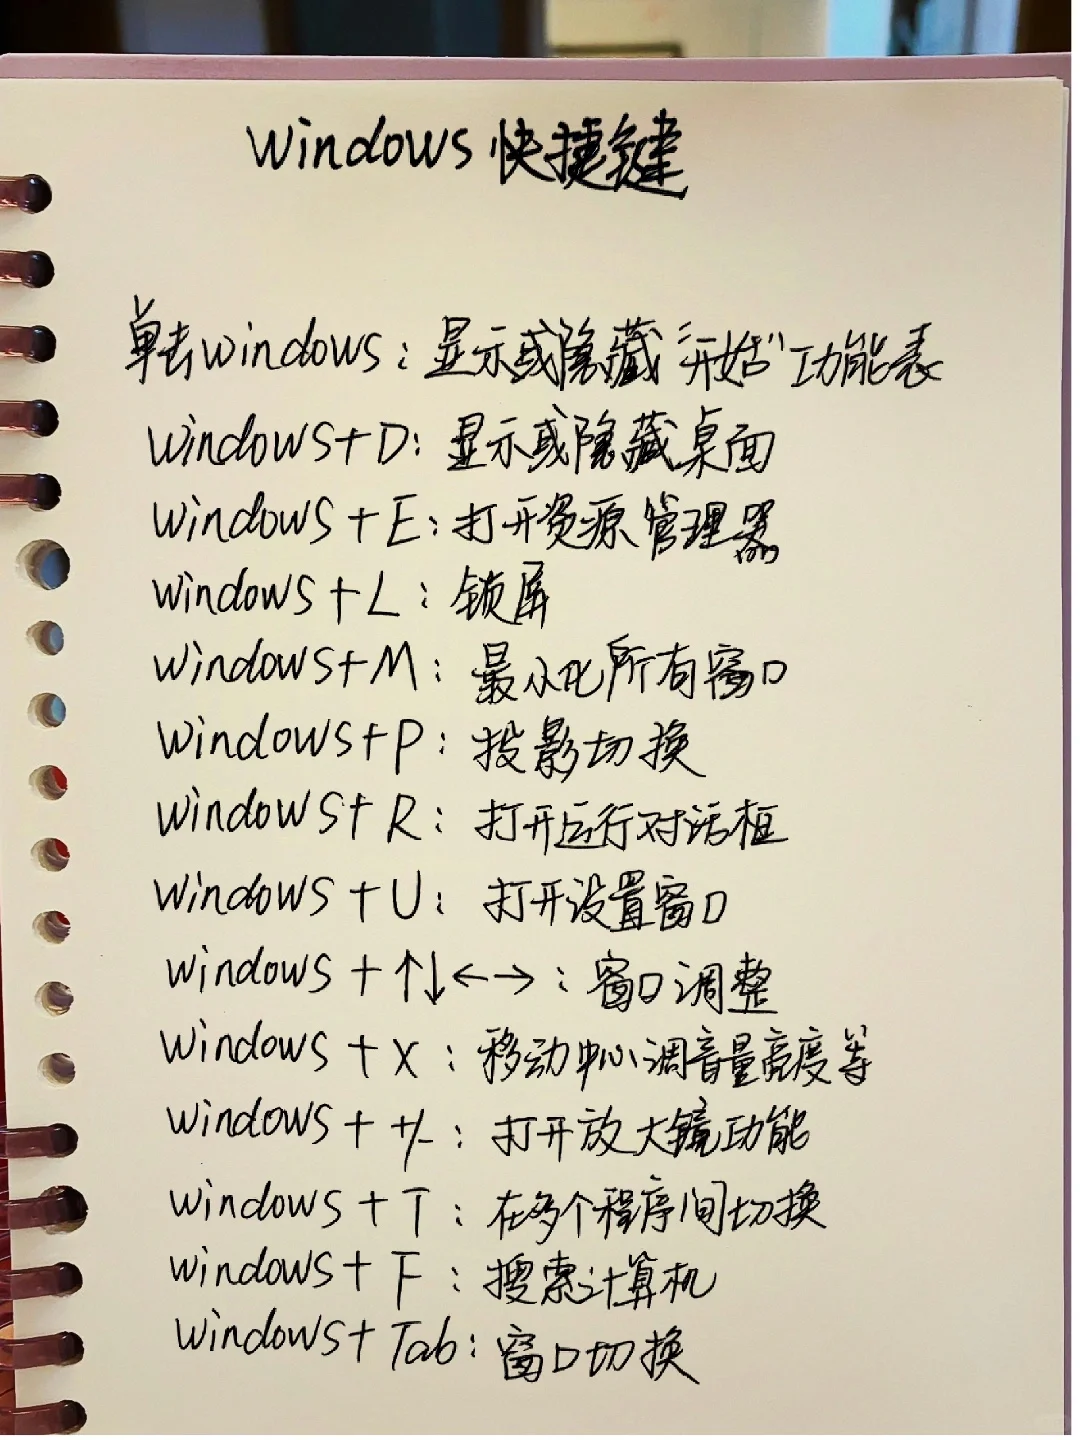 Windows 快捷键
单击windows：显示或隐藏“开始”功能表
Windows+D：显示或隐藏桌面
Windows+E：打开资源管理器
Windows+L：锁屏
Windows+M：最小化所有窗口
Windows+P：投影切换
Windows+R：打开运行对话框
Windows+U：打开设置窗口
Windows+↑↓←→：窗口调整
Windows+X：移动中心调音量亮度等
Windows++/-：打开放大镜功能
Windows+T：在多个程序间切换
Windows+F：搜索计算机
Windows+Tab：窗口切换